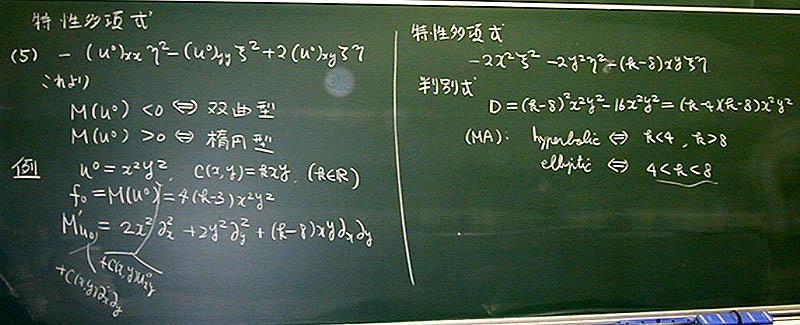 特性多項式
(5) -(u⁰)xx η² -(u⁰)yy ξ² +2(u⁰)xy ξη
これより
M(u⁰) <0 ⇔ 双曲型
M(u⁰) >0 ⇔ 楕円型
例 u⁰ = x²y², c(x,y)=kxy, (k∈R)
f₀ = M(u⁰) = 4(k-3)x²y²
M'u₀ = 2x²∂x² + 2y²∂y² + (k-8)xy∂x∂y
+c(x,y)u⁰xy
+c(x,y)∂x∂y
特性多項式
-2x²ξ² -2y²η² -(k-8)xyξη
判別式
D = (k-8)²x²y² -16x²y² = (k-4)(k-8)x²y²
(MA): hyperbolic ⇔ k<4, k>8
elliptic ⇔ 4<k<8